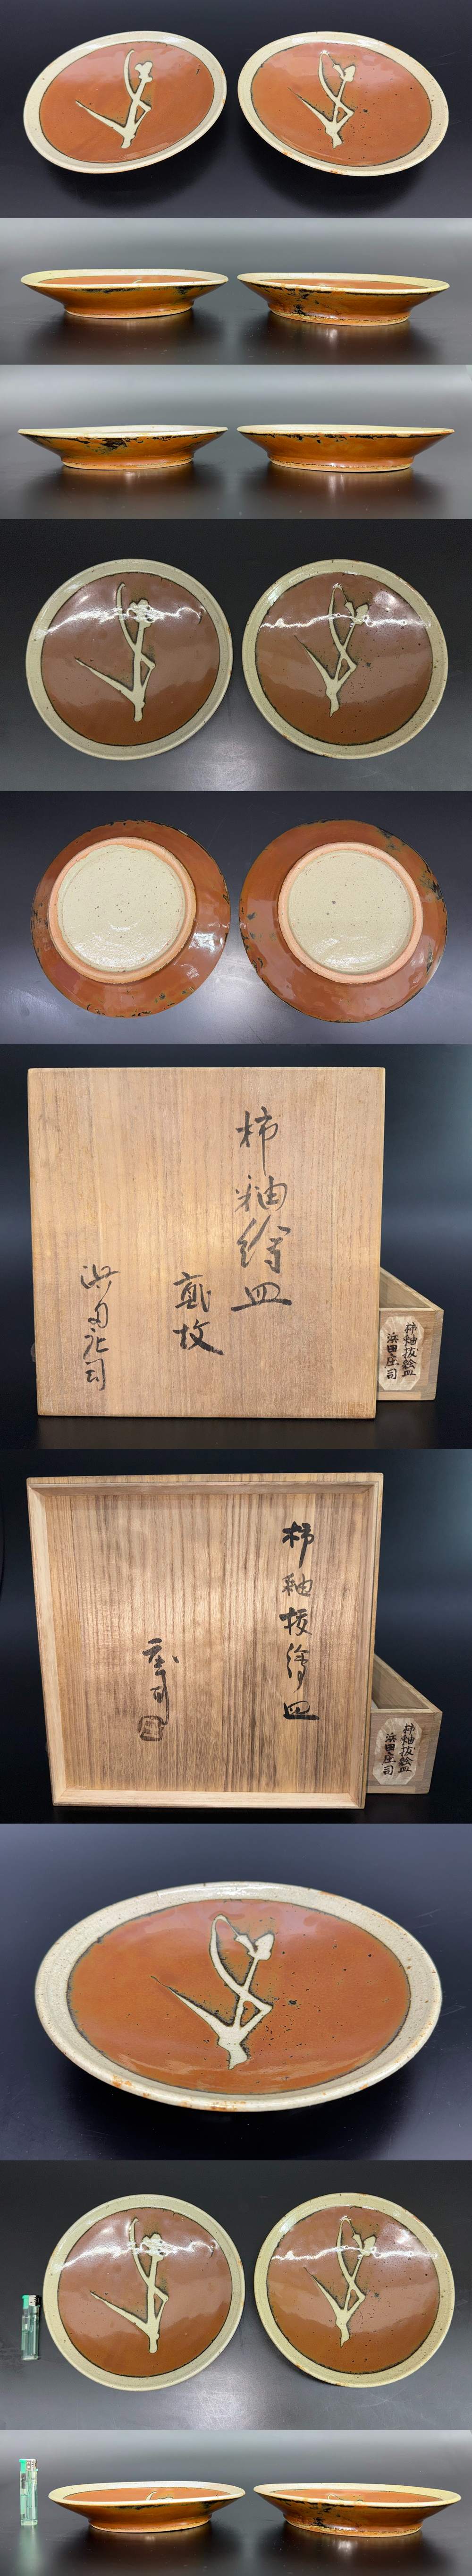 柿釉絵皿
貮枚
浜田庄司
柿釉抜絵皿
浜田庄司
柿釉抜絵皿
庄司
柿釉抜絵皿
浜田庄司